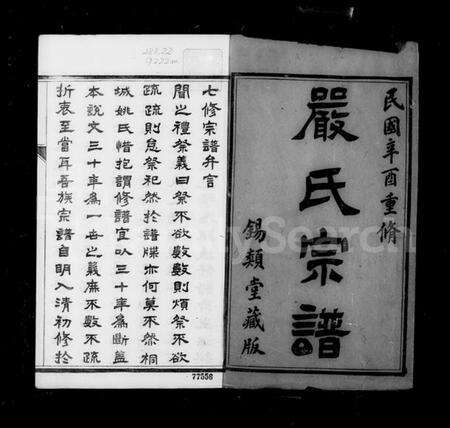 民國辛酉重脩
嚴氏宗譜
錫類堂藏版
七修宗譜弁言
聞之禮祭義曰祭不欲數數則煩祭不欲
疏疏則怠祭祀然於譜牒亦何莫不然桐
城姚氏惜抱謂修譜宜以三十年為斷蓋
本說文三十年為一世之義庶不數不疏
折衷至當耳吾族宗譜自明入清初修於
77556